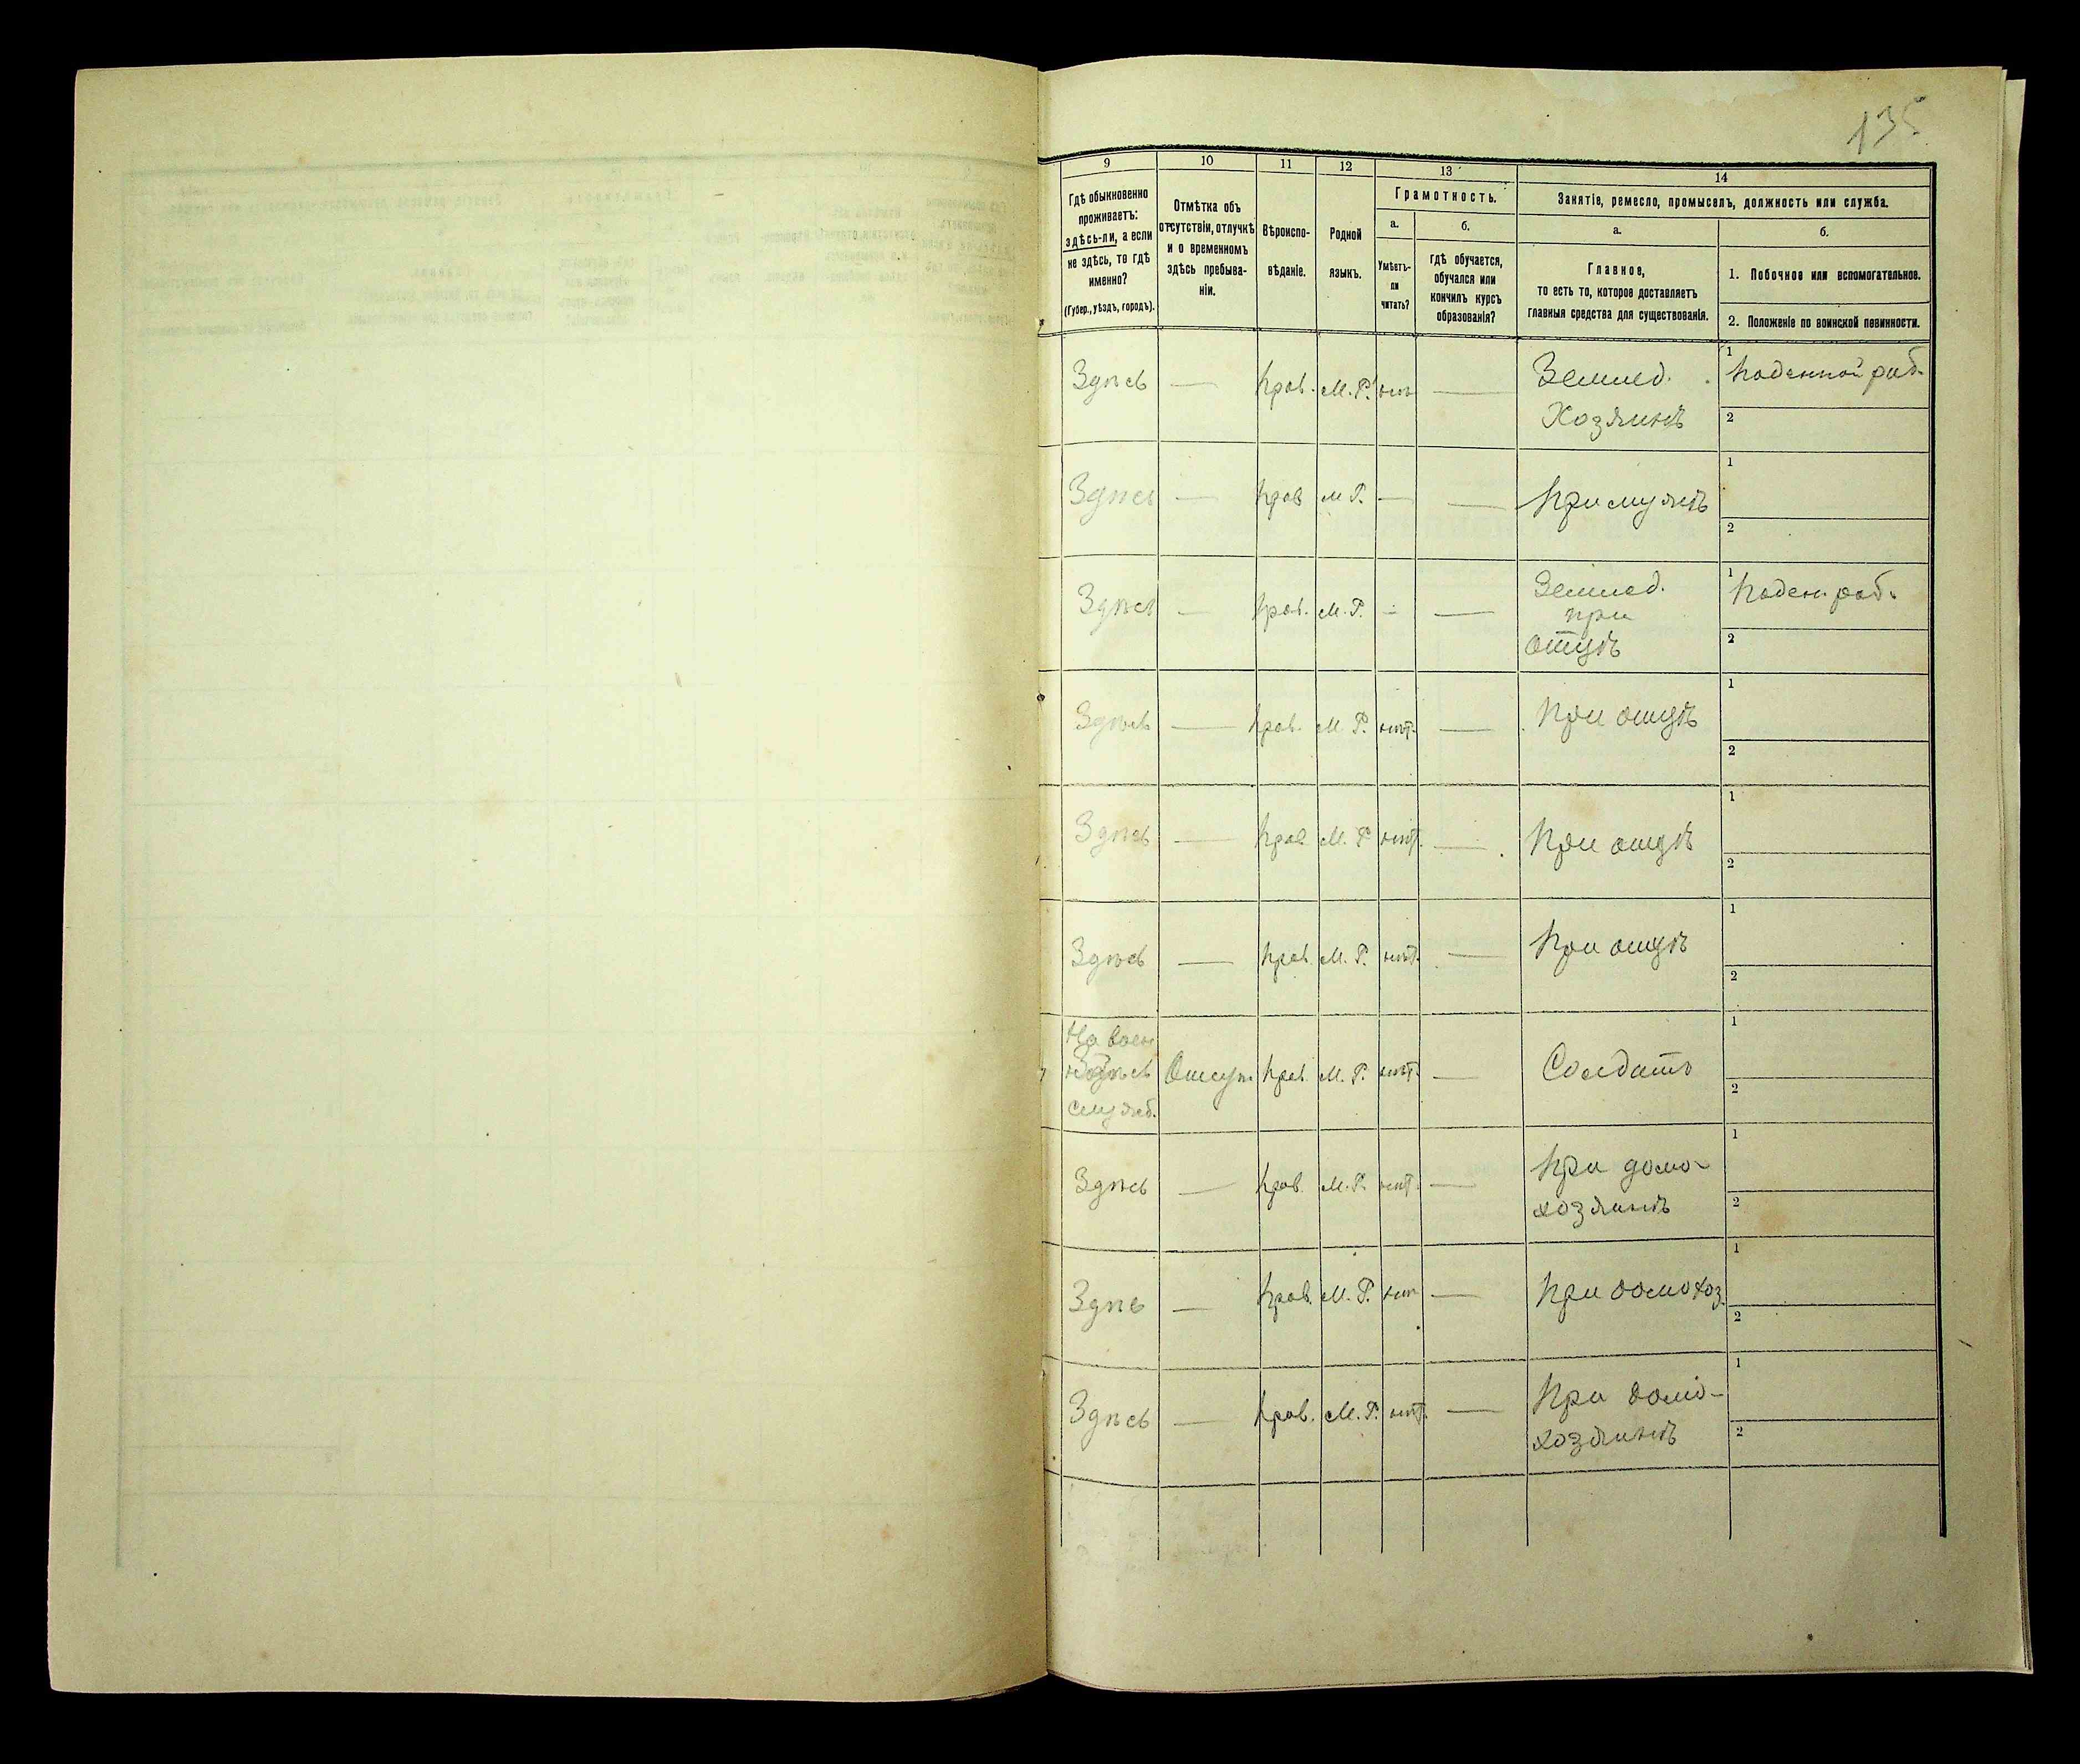 135
9 10 11 12 13 14
Гдѣ обыкновенно
проживаетъ:
здѣсь-ли, а если
не здѣсь, то гдѣ
именно?
(Губер., уѣздъ, городъ).
Отмѣтка объ
отсутствіи, отлучкѣ
и о временномъ
здѣсь пребыва-
ніи.
Вѣроиспо-
вѣданіе.
Родной
языкъ.
Грамотность.
а.
Умѣетъ-
ли
читать?
б.
гдѣ обучается,
обучался или
кончилъ курсъ
образованія?
Занятіе, ремесло, промыселъ, должность или служба.
а.
Главное,
то есть то, которое доставляетъ
главныя средства для существованія.
б.
1. Побочное или вспомогательное.
2. Положеніе по воинской повинности.
Здѣсь — Прав. М.Р. нѣт — Землед. 1 Поденной раб.
Хозяинъ 2
Здѣсь — Прав М Р. — — При мужѣ 1
2
Здѣсь — Прав. М.Р. — — Землед. 1 Поден. раб.
при
отцѣ 2
Здѣсь — Прав. М.Р. нѣт. — При отцѣ 1
2
Здѣсь — Прав. М.Р. нѣт. — При отцѣ 1
2
Здѣсь — Прав. М.Р. нѣт. — При отцѣ 1
2
На воен
служб.
Отсут. Прав. М.Р. нѣт. — Солдатъ 1
2
Здѣсь — Прав. М.Р. нѣт. — При домо- 1
хозяинѣ 2
Здѣсь — Прав. М.Р. нѣт — При домохоз. 1
2
Здѣсь — Прав. М.Р. нѣт. — При домо- 1
хозяинѣ 2